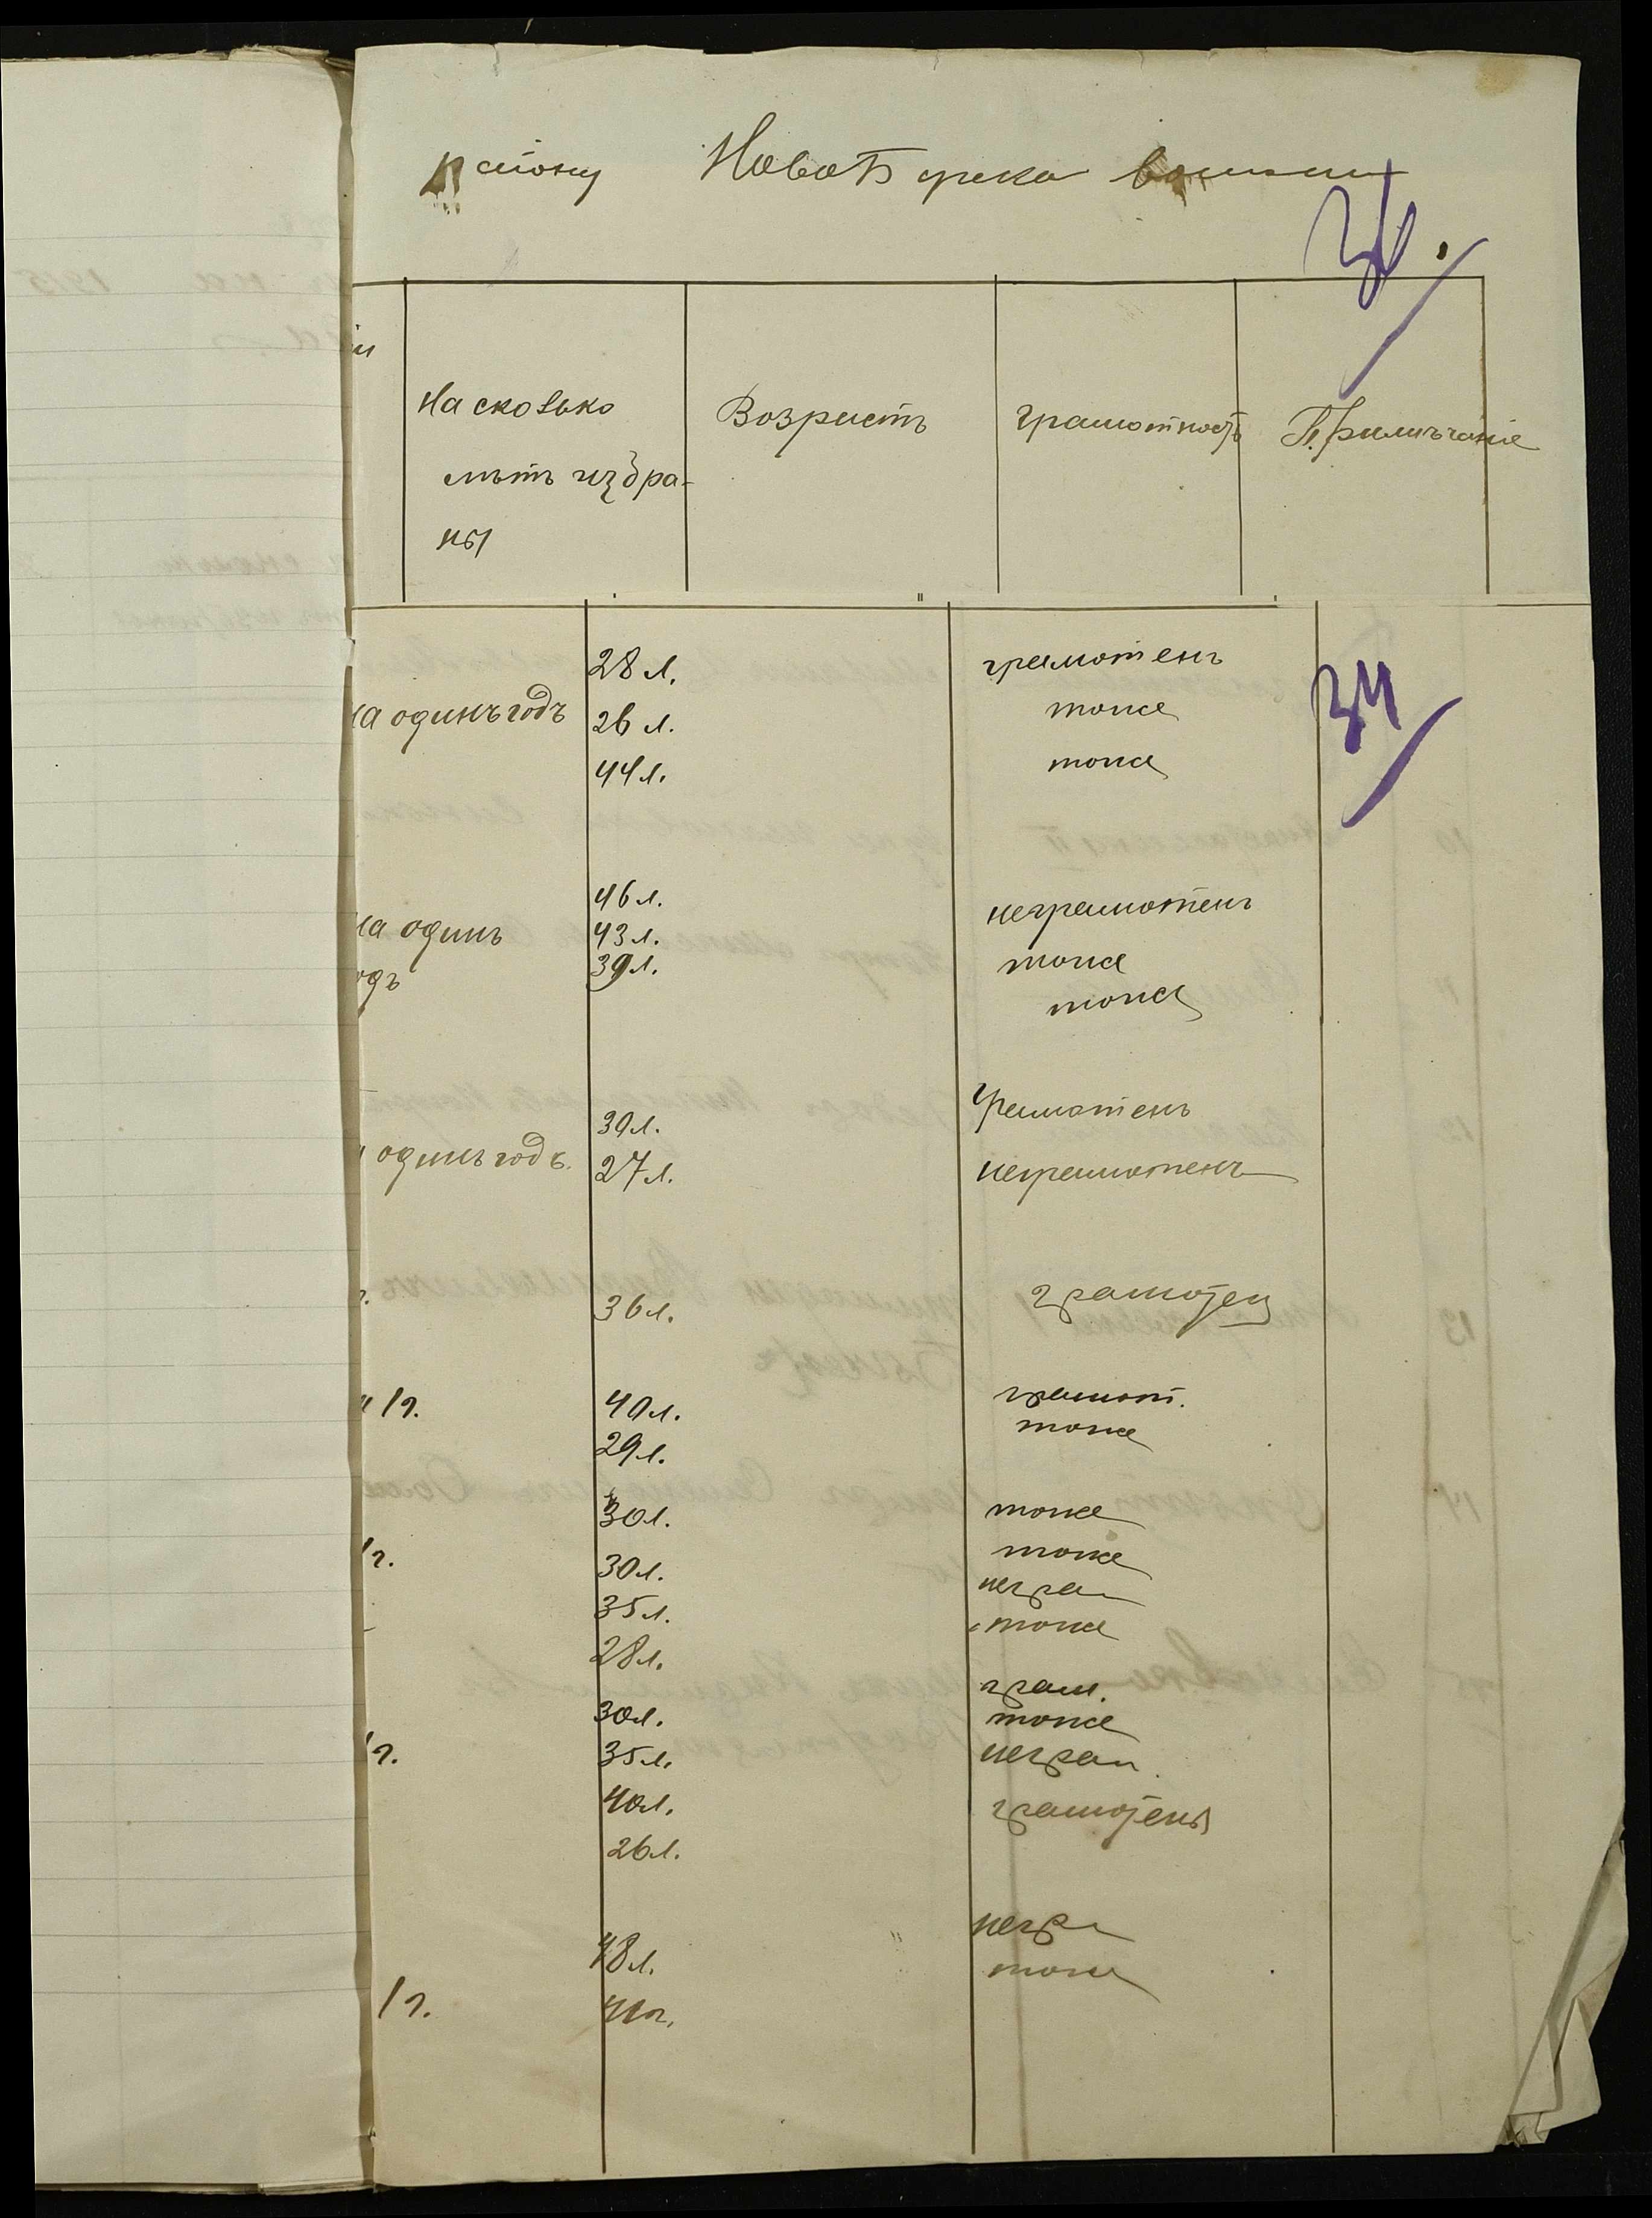 району Ново Бурека волости
34.
ии
На сколько
лѣтъ избра-
ны
Возрастъ
грамотность
Примѣчаніе
28 л. грамотенъ
34
на одинъ годъ 26 л. тоже
44 л. тоже
46 л. неграмотенъ
на одинъ 43 л. тоже
одъ 39 л. тоже
39 л. Грамотенъ
одинъ годъ. 27 л. неграмотенъ
г. 36 л. грамотен
1 г. 40 л. грамот.
29 л. тоже
30 л. тоже
1 г. 30 л. тоже
35 л. неграм
28 л. тоже
30 л. грам.
1 г. 35 л. тоже
40 л. неграм.
26 л. грамотенъ
48 л. негр
1 г. 41 л. тоже